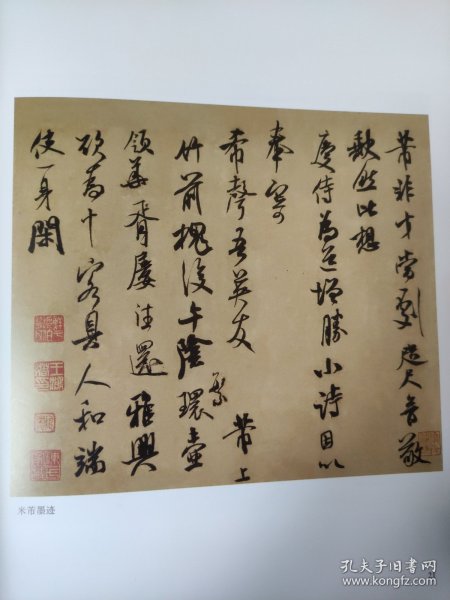 芾非才當劇咫尺音敬
缺然比想
慶侍為道增勝小詩因以
奉寄
希聲吾英友 芾上
竹前槐後午陰環壺
繁
領華胥屢往還雅興
欲為十客具人和端
使一身閑
米芾墨迹
孔夫子旧书网
www.kongfz.com